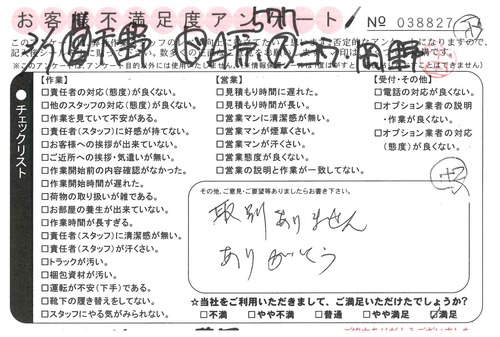 お客様不満足度アンケート
No 038827
【作業】
□責任者の対応(態度)が良くない。
□他のスタッフの対応(態度)が良くない。
□作業を見ていて不安がある。
□責任者(スタッフ)に好感が持てない。
□お客様への挨拶が出来ていない。
□ご近所への挨拶・気遣いが無い。
□作業開始前の内容確認がなかった。
□作業開始時間が遅れた。
□荷物の取り扱いが雑である。
□お部屋の養生が出来ていない。
□作業時間が長すぎる。
□責任者(スタッフ)に清潔感が無い。
□責任者(スタッフ)が汗くさい。
□トラックが汚い。
□梱包資材が汚い。
□運転が不安(下手)である。
□靴下の履き替えをしてない。
□スタッフにやる気がみられない。
【営業】
□見積もり時間に遅れた。
□見積もり時間が長い。
□営業マンに清潔感が無い。
□営業マンが煙草くさい。
□営業マンが汗くさい。
□営業態度が良くない。
□営業の説明と作業が一致してない。
【受付・その他】
□電話の対応が良くない。
□オプション業者の説明
・作業が良くない。
□オプション業者の対応
(態度)が良くない。
チェックリスト
その他、ご意見・ご要望等ありましたらお書き下さい。
取別ありません
ありがとう
☆当社をご利用いただきまして、ご満足いただけたでしょうか?
□不満 □やや不満 □普通 □やや満足 ☑満足